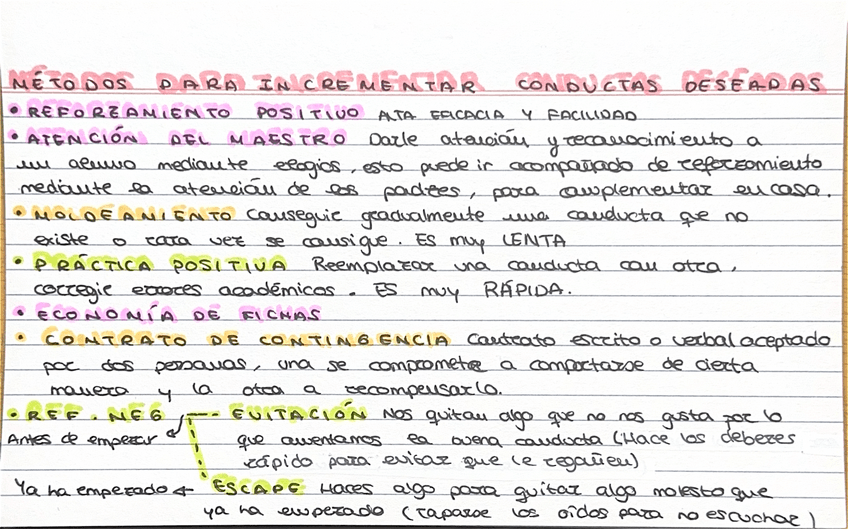 MÉTODOS PARA INCREMENTAR CONDUCTAS DESEADAS
• REFORZAMIENTO POSITIVO ALTA EFICACIA Y FACILIDAD
• ATENCIÓN DEL MAESTRO Darle atención y reconocimiento a
un alumno mediante elogios, esto puede ir acompañado de reforzamiento
mediante la atención de los padres, para complementar en casa.
• MOLDEAMIENTO Conseguir gradualmente una conducta que no
existe o rara vez se consigue. ES muy LENTA
• PRÁCTICA POSITIVA Reemplazar una conducta con otra,
corregir errores académicos. ES muy RÁPIDA.
• ECONOMÍA DE FICHAS
• CONTRATO DE CONTINGENCIA Contrato escrito o verbal aceptado
por dos personas, una se compromete a comportarse de cierta
manera y la otra a recompensarlo.
• REF. NEG -- EVITACIÓN Nos quitan algo que no nos gusta por lo
Antes de empezar que aumentamos la buena conducta (Hace los deberes
rápido para evitar que le regañen)
Ya ha empezado ← ESCAPE Haces algo para quitar algo molesto que
ya ha empezado (taparse los oídos para no escuchar)